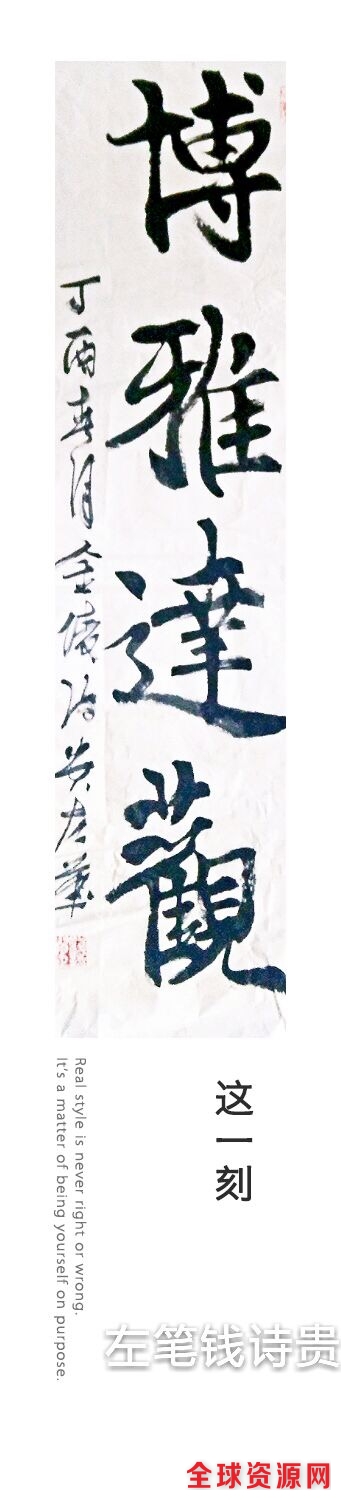 博雅達觀
丁酉春月金陵诗贵左笔
这一刻
Real style is never right or wrong.
It's a matter of being yourself on purpose.
左笔钱诗贵
全球资源网